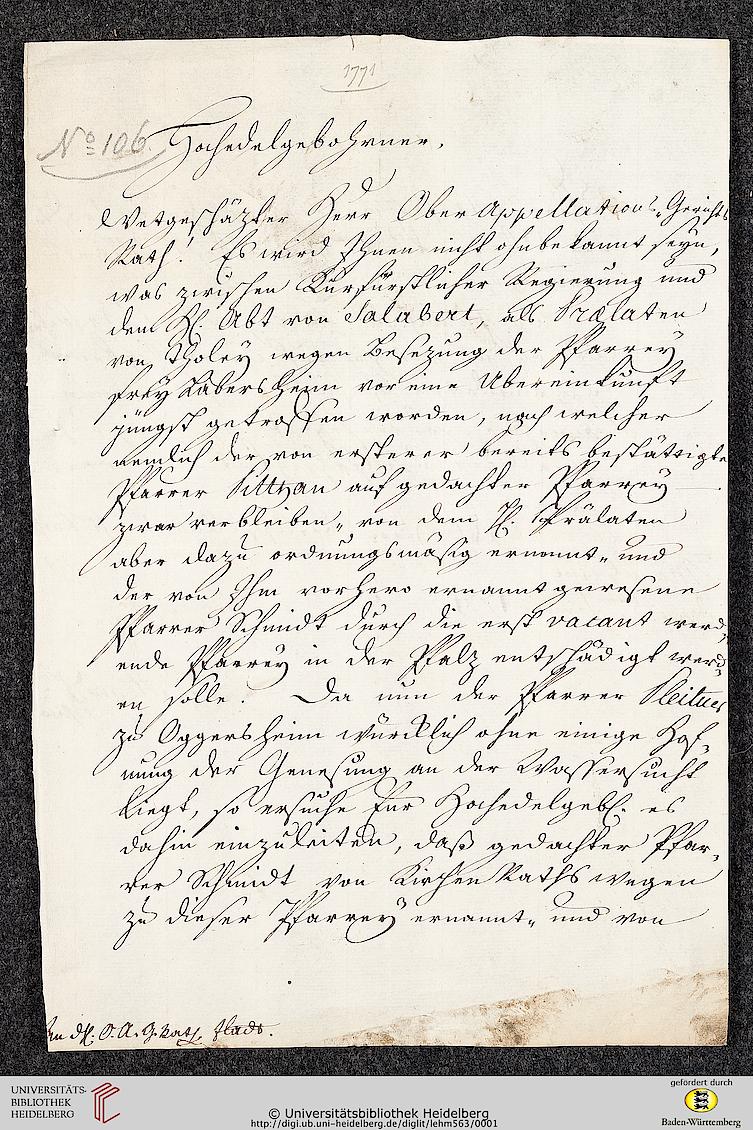 1771
No 106
Hochedelgebohrner,
Wertgeschäzter Herr Ober Appellations-Gerichts
Rath! Es wird Ihnen nicht ohnbekannt seyn,
was zwischen Kurfürstlicher Regierung und
dem H. Abt von Salabert, als Prælaten
von Tholey wegen Besezung der Pfarrey
frey Laubersheim vor eine Übereinkunft
jüngst getroffen worden, nach welcher
nemlich der von ersterer bereits bestättigte
Pfarrer auf gedachter Pfarrey
zwar verbleiben, von dem H. Prälaten
aber dazu ordnungsmäsig ernannt, und
der von Ihm vorhero ernannt gewesene
Pfarrer Schmidt durch die erst vacant werd,
ende Pfarrey in der Pfalz entschädigt werd,
en solle. Da nun der Pfarrer
zu Oggersheim würcklich ohne einige Hof,
nung der Genesung an der Wassersucht
liegt, so ersuche Eur Hochedelgebh. es
dahin einzuleiten, daß gedachter Pfar,
rer Schmidt von Kirchen Raths wegen
zu dieser Pfarrey ernannt, und von
An dH. O. A. G. Rath Flads.
UNIVERSITÄTS-
BIBLIOTHEK
HEIDELBERG
© Universitätsbibliothek Heidelberg
http://digi.ub.uni-heidelberg.de/diglit/lehm563/0001
gefördert durch
Baden-Württemberg